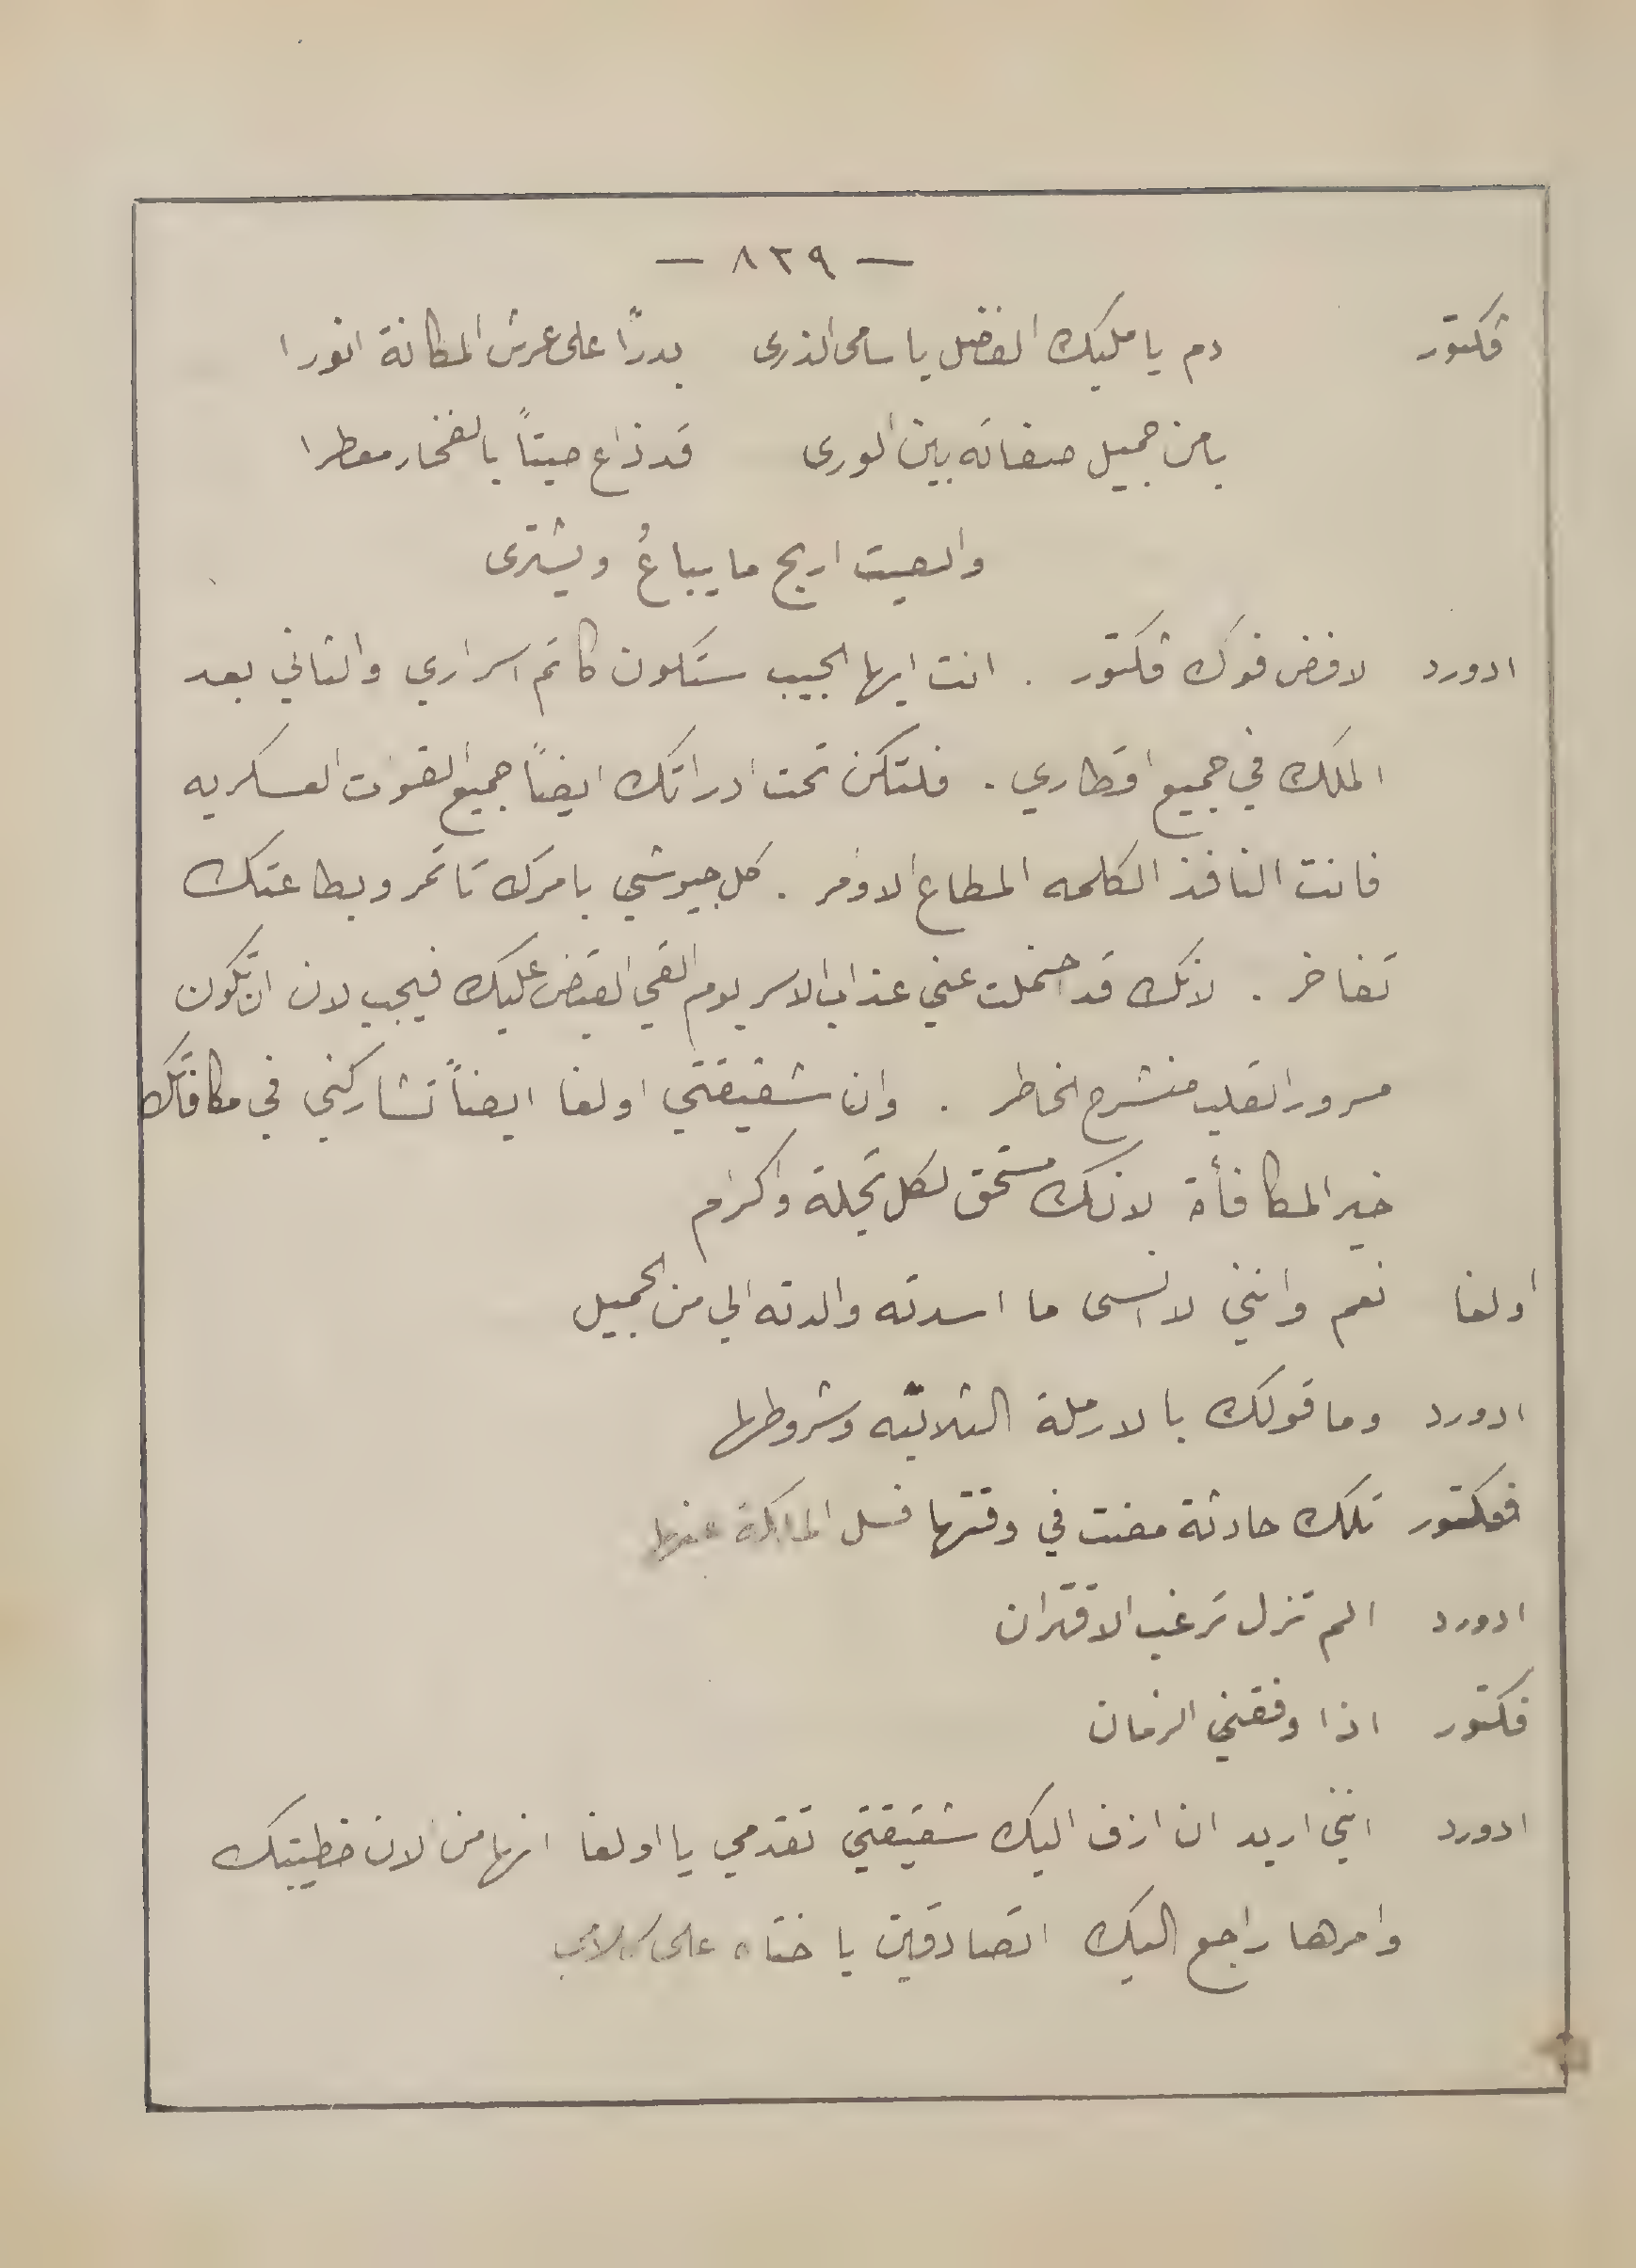 — ٨٢٩ —
ڤكتور دم يا مليك الفضل يا سامى الذرى بدرًا على عرش المكانة انورا
يا من جميل صفاته بين الورى قد ذاع صيتاً بالفخار معطرا
والصيت اربح ما يباعُ ويشترى
ادورد لا فض فوك ڤكتور . انت ايها الحبيب ستكون كاتم اسراري والثاني بعد
الملك في جميع اقطاري . فلتكن تحت ادراتك ايضاً جميع القوات العسكريه
فانت النافذ الكلمه المطاع الاوامر . كل جيوشي بامرك تاتمر وبطاعتك
تفاخر . لانك قد احتملت عني عذاب الاسر يوم القي القبض عليك فيجب لان ان تكون
مسرور القلب منشرح الخاطر . وان شقيقتي اولغا ايضاً تشاركني في مكافاتك
خير المكافأة لانك مستحق لكل تجلة واكرام
اولغا نعم وانني لا انسى ما اسدته والدته الي من الجميل
ادورد وما قولك بالارملة الثلاثيّه وشروطها
ڤكتور تلك حادثة مضت في وقتها فسل المالكة عنها
ادورد الم تزل ترغب الاقتران
ڤكتور اذا وفقني الزمان
ادورد انني اريد ان ازف اليك شقيقتي تقدمي يا اولغا انها من لان خطيبتك
وامرها راجع اليك اتصادقين يا ختاه على كلامي